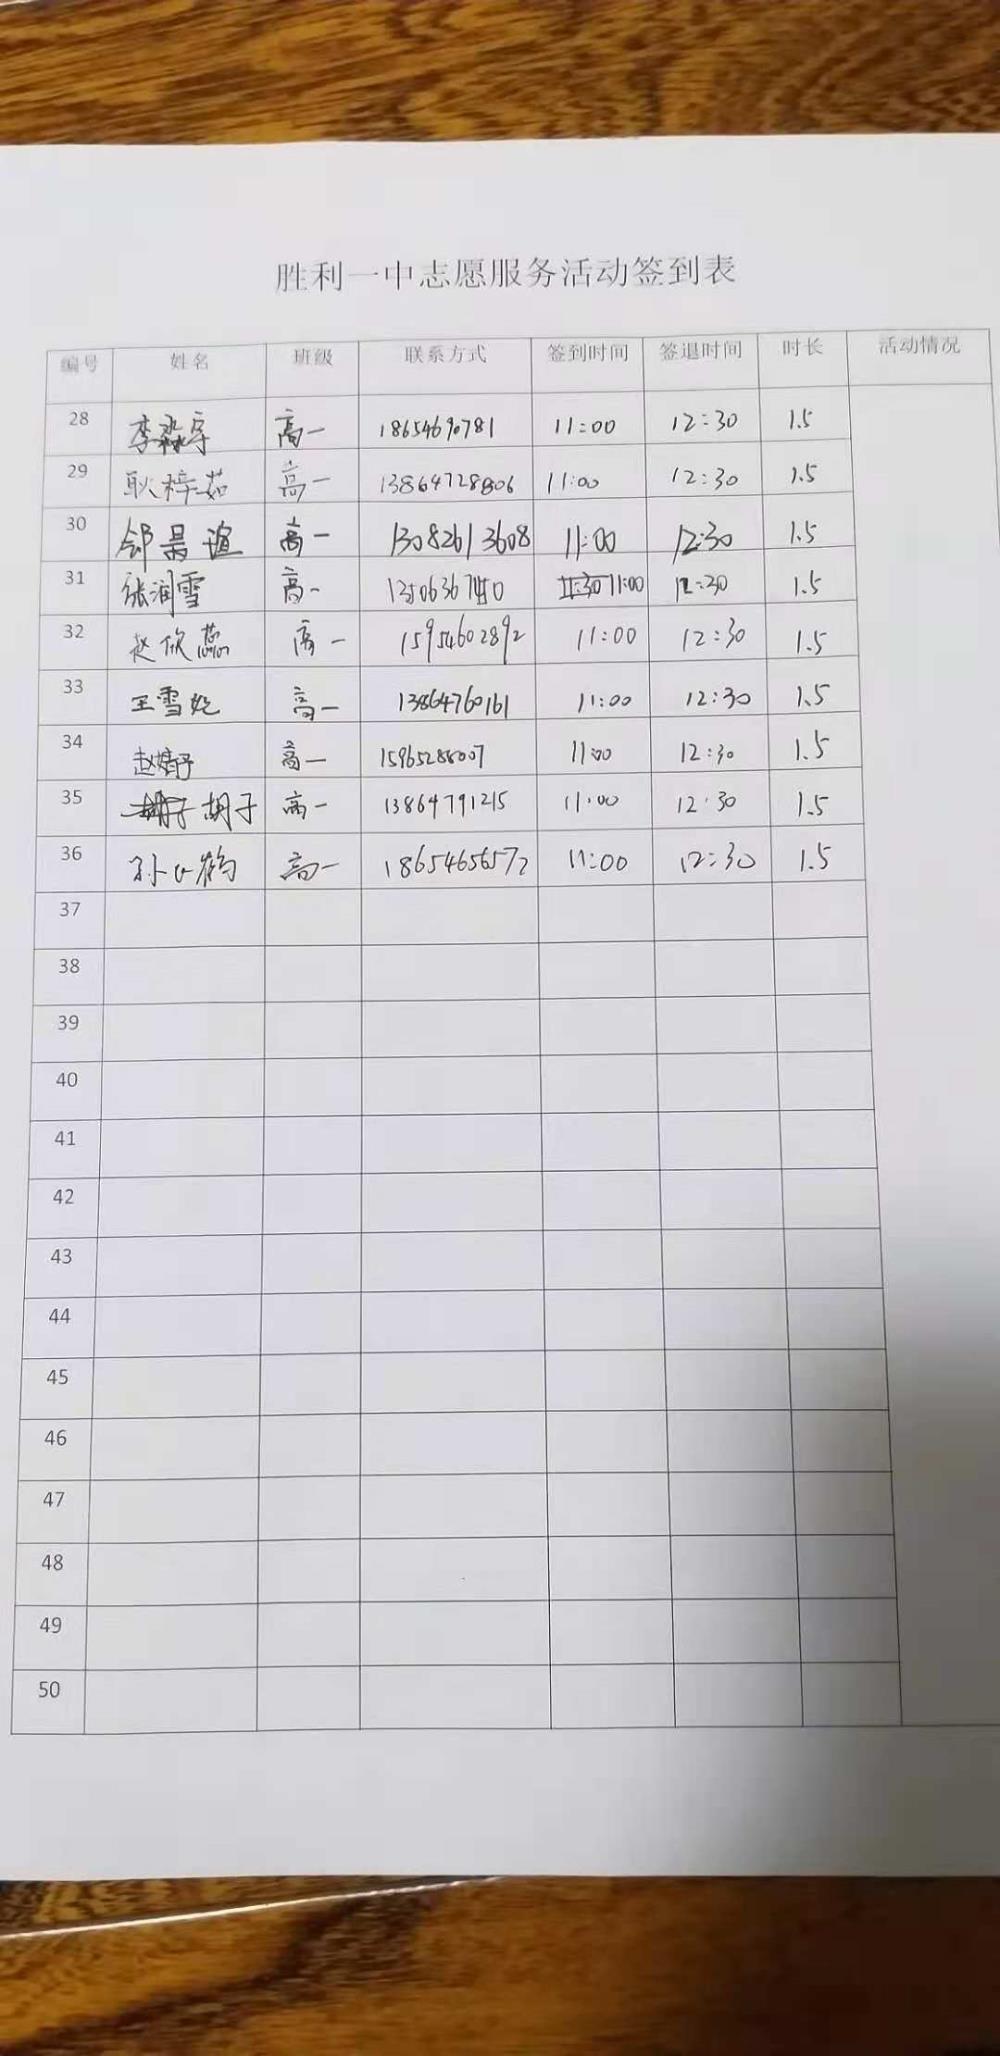 胜利一中志愿服务活动签到表
编号 姓名 班级 联系方式 签到时间 签退时间 时长 活动情况
28 李淼宇 高一 18654690781 11:00 12:30 1.5
29 耿梓茹 高一 13864728806 11:00 12:30 1.5
30 高一 13082613608 11:00 12:30 1.5
31 张润雪 高一 11:00 12:30 1.5
32 赵欣蕊 高一 15954602892 11:00 12:30 1.5
33 王雪 高一 13864760161 11:00 12:30 1.5
34 赵 高一 11:00 12:30 1.5
35 胡子 高一 13864791215 11:00 12:30 1.5
36 孙 鹤 高一 18654656572 11:00 12:30 1.5
37
38
39
40
41
42
43
44
45
46
47
48
49
50